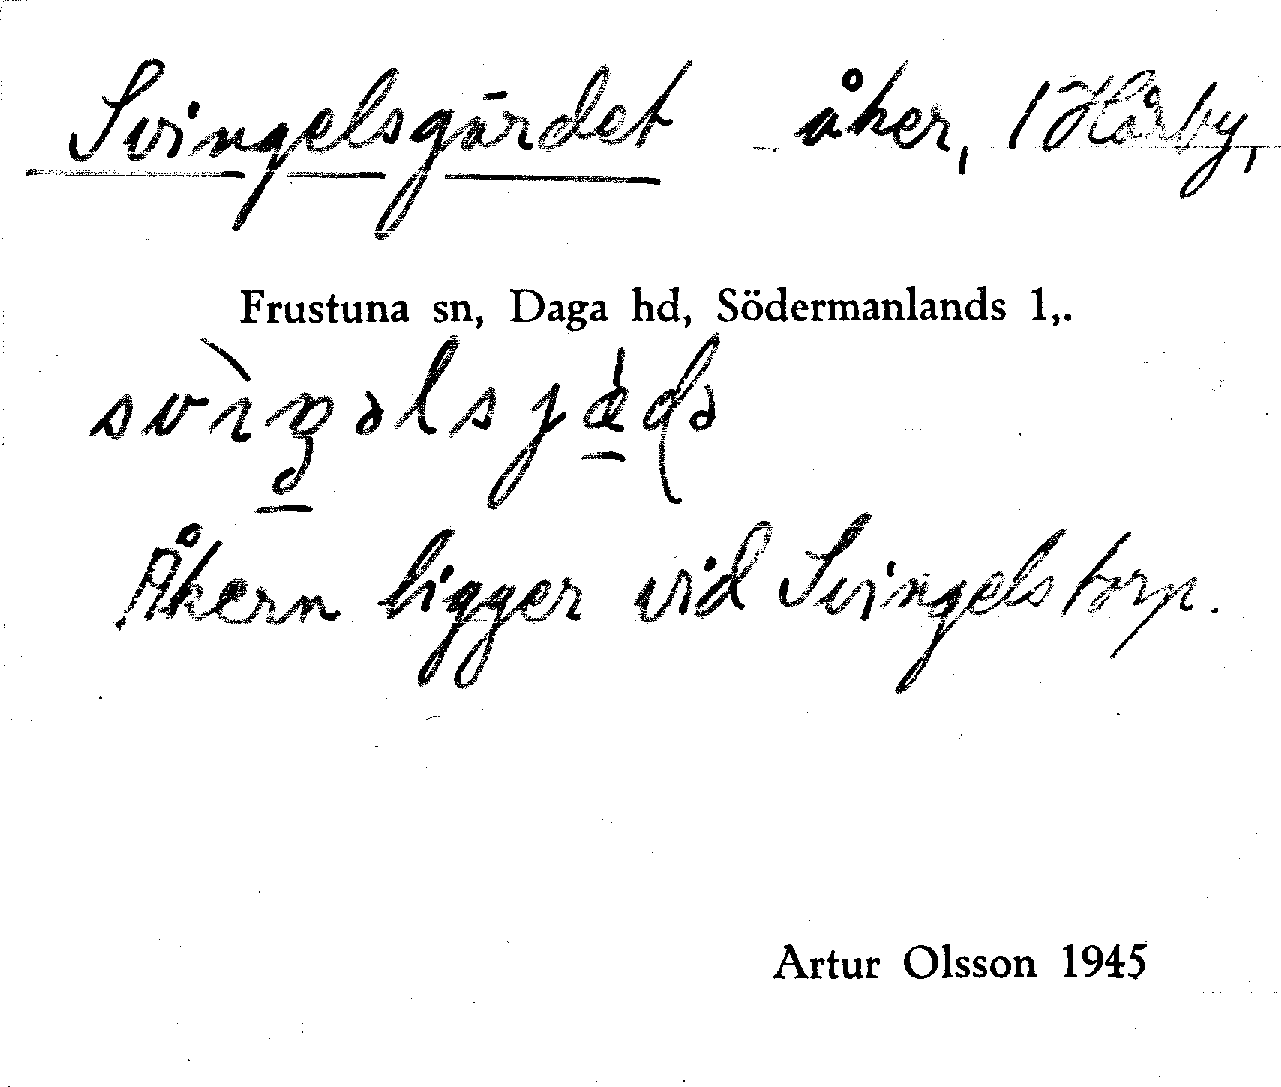 Svingelsgärdet åker, 1 Hårby,
Frustuna sn, Daga hd, Södermanlands l,.
Åkern ligger vid Svingelstorp.
Artur Olsson 1945